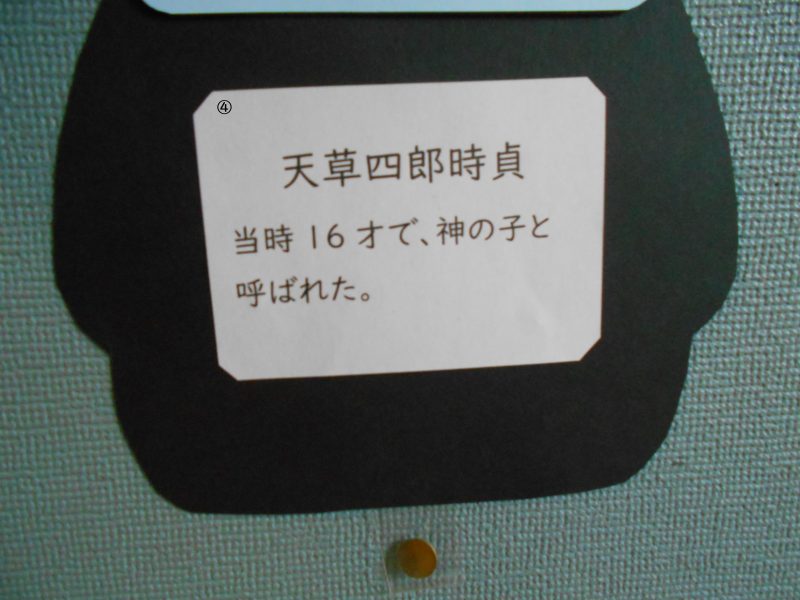 ④
天草四郎時貞
当時 16 才で、神の子と
呼ばれた。